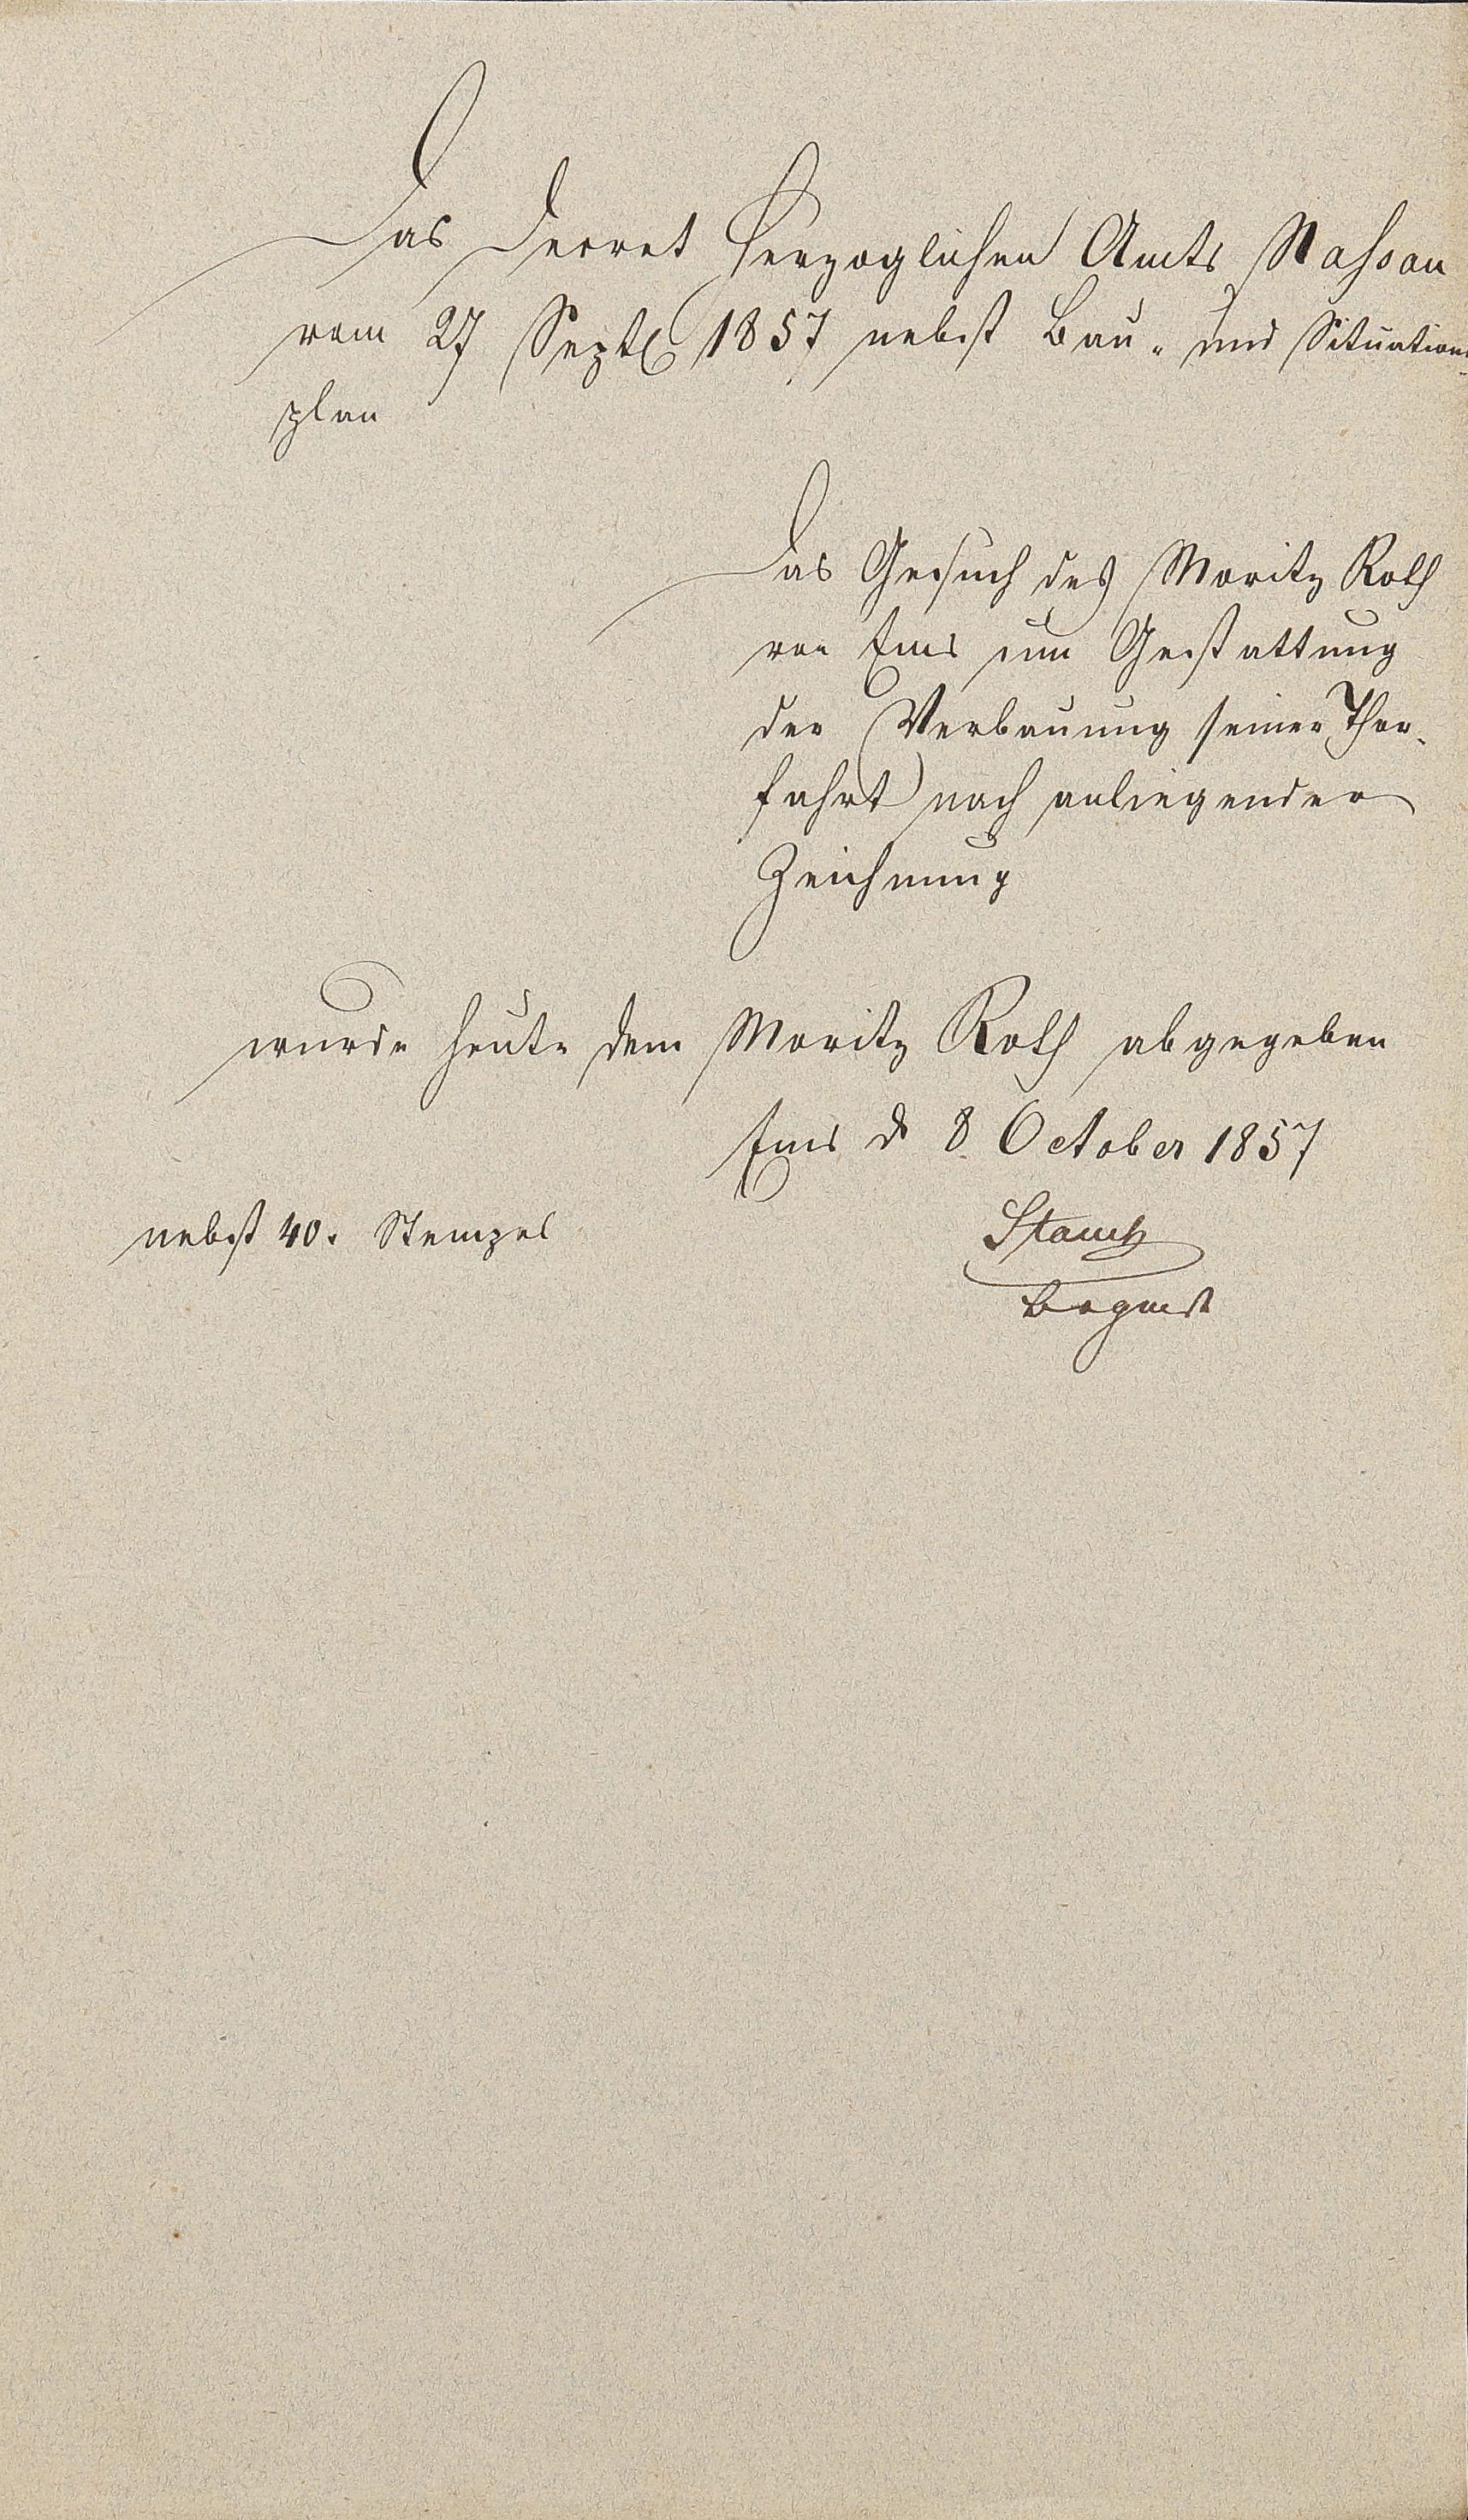 Das Decret Herzoglichen Amts Nassau
vom 27 Septb 1857 nebst Bau- und Situations-
plan
Das Gesuch des Moritz Roth
von Ems um Gestattung
der Verbauung seiner Thor-
fahrt nach anliegender
Zeichnung
wurde heute dem Moritz Roth abgegeben
Ems d 8 October 1857
nebst 40. Stempel